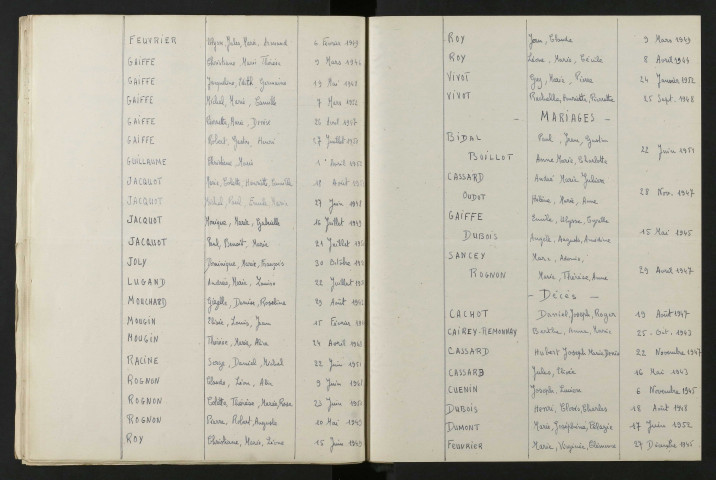 FEUVRIER Ulysse, Jules, René, Armand 6 Février 1949
GAIFFE Christiane Marie Thérèse 9 Mars 1946
GAIFFE Jacqueline, Edith, Germaine 13 Mai 1948
GAIFFE Michel, Marie, Camille 7 Mars 1952
GAIFFE Pierrette, Marie, Denise 25 Avril 1947
GAIFFE Robert, Gaston, Henri 27 Juillet
GUILLAUME Christiane, Marie 1er Avril
JACQUOT Marie, Colette, Henriette, Camille 18 Août
JACQUOT Michel, Paul, Emile, Marie 27 Juin 1948
JACQUOT Monique, Marie, Gabrielle 16 Juillet 1949
JACQUOT Paul, Benoit, Marie 21 Juillet
JOLY Dominique, Marie, François 30 Octobre
LUGAND Andrée, Marie, Louise 22 Juillet
MOUCHARD Gisèle, Denise, Roseline 29 Août
MOUGIN Elisée, Louis, Jean 15 Février
MOUGIN Thérèse, Marie, Alice 24 Avril
RACINE Serge, Daniel, Michel 22 Juin 1951
ROGNON Claude, Léon, Alex 9 Juin
ROGNON Colette, Thérèse, Marie, Rose 23 Juin
ROGNON Pierre, Robert, Auguste 10 Mai 1949
ROY Christiane, Marie, Léone 15 Juin 1949
ROY Jean, Claude 9 Mars 1949
ROY Léone, Marie, Cécile 8 Avril 1944
VIVOT Guy, Marie, Pierre 24 Janvier 1952
VIVOT Rachelle, Henriette, Pierrette 25 Sept. 1948
- MARIAGES -
BIDAL Paul, Jean, Gaston
BOILLOT Anne, Marie, Charlotte 22 Juin 1951
CASSARD André Marie Juliien
OUDOT Hélène, Marie, Anne 28 Nov. 1947
GAIFFE Emile, Ulysse,
DUBOIS Angèle, Augusta, 15 Mai 1945
SANCEY Marc, Adonis,
ROGNON Marie, Thérèse, Anne 29 Avril 1947
- DÉCÈS -
CACHOT Daniel, Joseph, Roger 19 Août 1947
CAIREY-REMONNAY Berthe, Anna, Marie 25 Oct. 1943
CASSARD Hubert Joseph Marie Denis 22 Novembre 1947
CASSARD Jules, Elisée 16 Mai 1943
CUENIN Joseph, Lucien 6 Novembre 1945
DUBOIS Henri, Clovis, Charles 18 Août 1948
DUMONT Marie, Joséphine, Pélagie 17 Juin 1952
FEUVRIER Marie, Virginie, Clémence 27 Décembre 1945